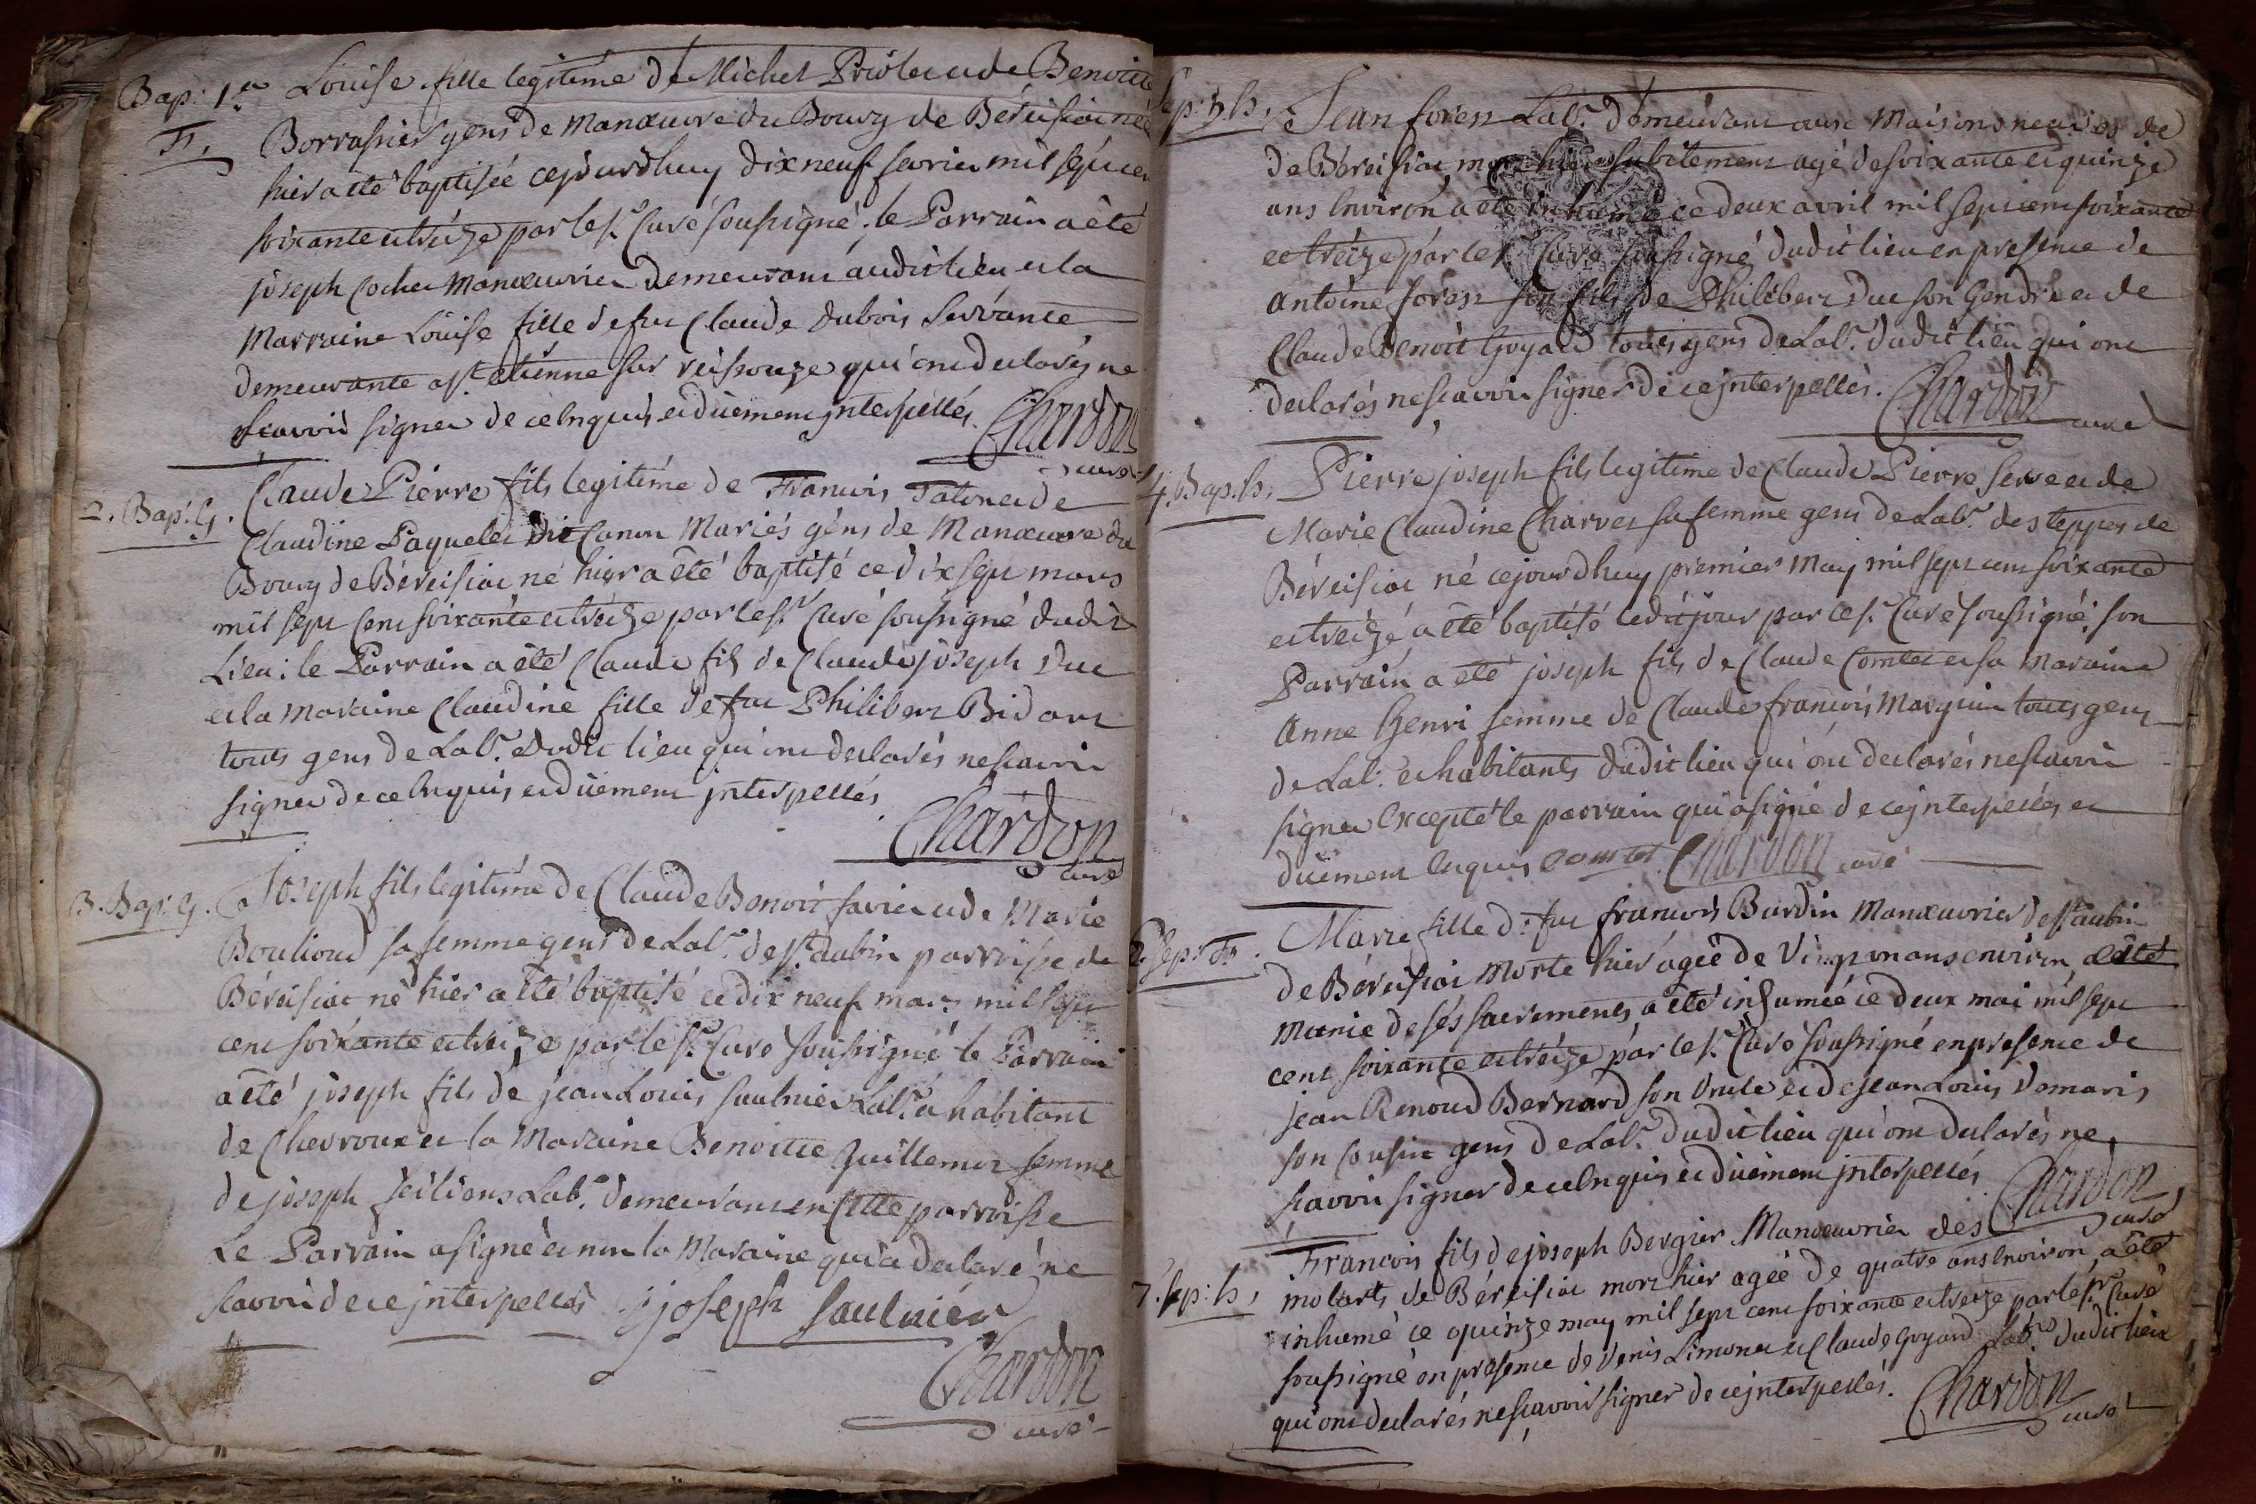 Bap: 1er Louise fille legitime de Michel Priolet et de Benoitte
F. Borrassier gens de Manœuvre du Bourg de Béreisiat née
hier a été baptisée cejourdhuy dix neuf fevrier mil sept cen
soixante et treize par le sr. Curé soussigné, le Parrain a été
joseph Cochet Manœuvrier demeurant audit lieu et la
Marraine Louise fille de feu Claude dubois Servante
demeurante a st etiènne sur reissouze qui ont declarés ne
scavoir signer de ce enquis et düement interpellés. Chardon
curé
2. Bap: G. Claude Pierre fils legitime de Francois Talon et de
Claudine Paquelet dit Canon Mariés gens de Manœuvre du
Bourg de Béreisiat né hier a été baptisé ce dix sept mars
mil sept cent soixante et treize par le sr. Curé soussigné dudit
Lieu: le Parrain a été Claude fils de Claude joseph Duc
et la maraine Claudine fille de feu Philibert Bidart
touts gens de Labr. dudit lieu qui ont declarés ne scavoir
signer de ce enquis et düement interpellés
Chardon
curé
3. Bap: G. Joseph fils legitime de Claude Benoit favier et de Marie
Boulioud sa femme gens de Labr. de st. aubin parroisse de
Béreisiat né hier a été baptisé ce dix neuf mars mil sept
cent soixante et treize par le sr. Curé soussigné le Parrain
a été joseph fils de jean Louis saulnier Labr. et habitant
de Chevroux et la Maraine Benoitte Guillemin femme
de joseph Labr. demeurant en cette parroisse
Le Parrain a signé et non la Maraine qui a declaré ne
scavoir de ce interpellés joseph saulniér
Chardon
curé
Sep: h. Jean foren Labr. demeurant aux Maisons neuves de
de Béreisiat mort hier subitement agé de soixante et quinze
ans environ a été inhumé ce deux avril mil sept cent soixante
et treize par le sr Curé soussigné dudit lieu en presence de
antoine foren son fils de Philibert Duc son Gendre et de
Claude Benoit Goyard touts gens de Labr. dudit lieu qui ont
declarés ne scavoir signer de ce interpellés. Chardon
curé
4. Bap. h. Pierre joseph fils legitime de Claude Pierre Serve et de
Marie Claudine Charvet sa femme gens de Labr. des teppes de
Béreisiat né cejourdhuy premier may mil sept cent soixante
et treize a été baptisé ledit jour par le sr. Curé soussigné: son
Parrain a été joseph fils de Claude Comtet et sa Maraine
anne Genri femme de Claude francois Marguin touts gens
de Labr. et habitants dudit lieu qui ont declarés ne scavoir
signer excepté le parrain qui a signé de ce interpellés et
düement enquis comtet Chardon curé
2. Sep: F. Marie fille de feu francois Burdin Manœuvrier de st. aubin
de Béreisiat Morte hier agée de Vingt un ans environ a été
munie de ses sacrements a été inhumée ce deux mai mil sept
cent soixante et treize par le sr. Curé soussigné en presence de
jean Renoud Bernard son Oncle et de jean Louis Damaris
son cousin gens de Labr. dudit lieu qui ont declarés ne
scavoir signer de ce enquis et düement interpellés Chardon
curé
7. Sep: h. Francois fils de joseph Bergier Manœuvrier des
molarts de Béreisiat mort hier agée de quatre ans environ, a été
inhumé ce quinze may mil sept cent soixante et treize par le sr. Curé
soussigné en presence de denis Limonet et Claude Goyard Labrs dudit lieu
qui ont declarés ne scavoir signer de ce interpellés. Chardon
curé